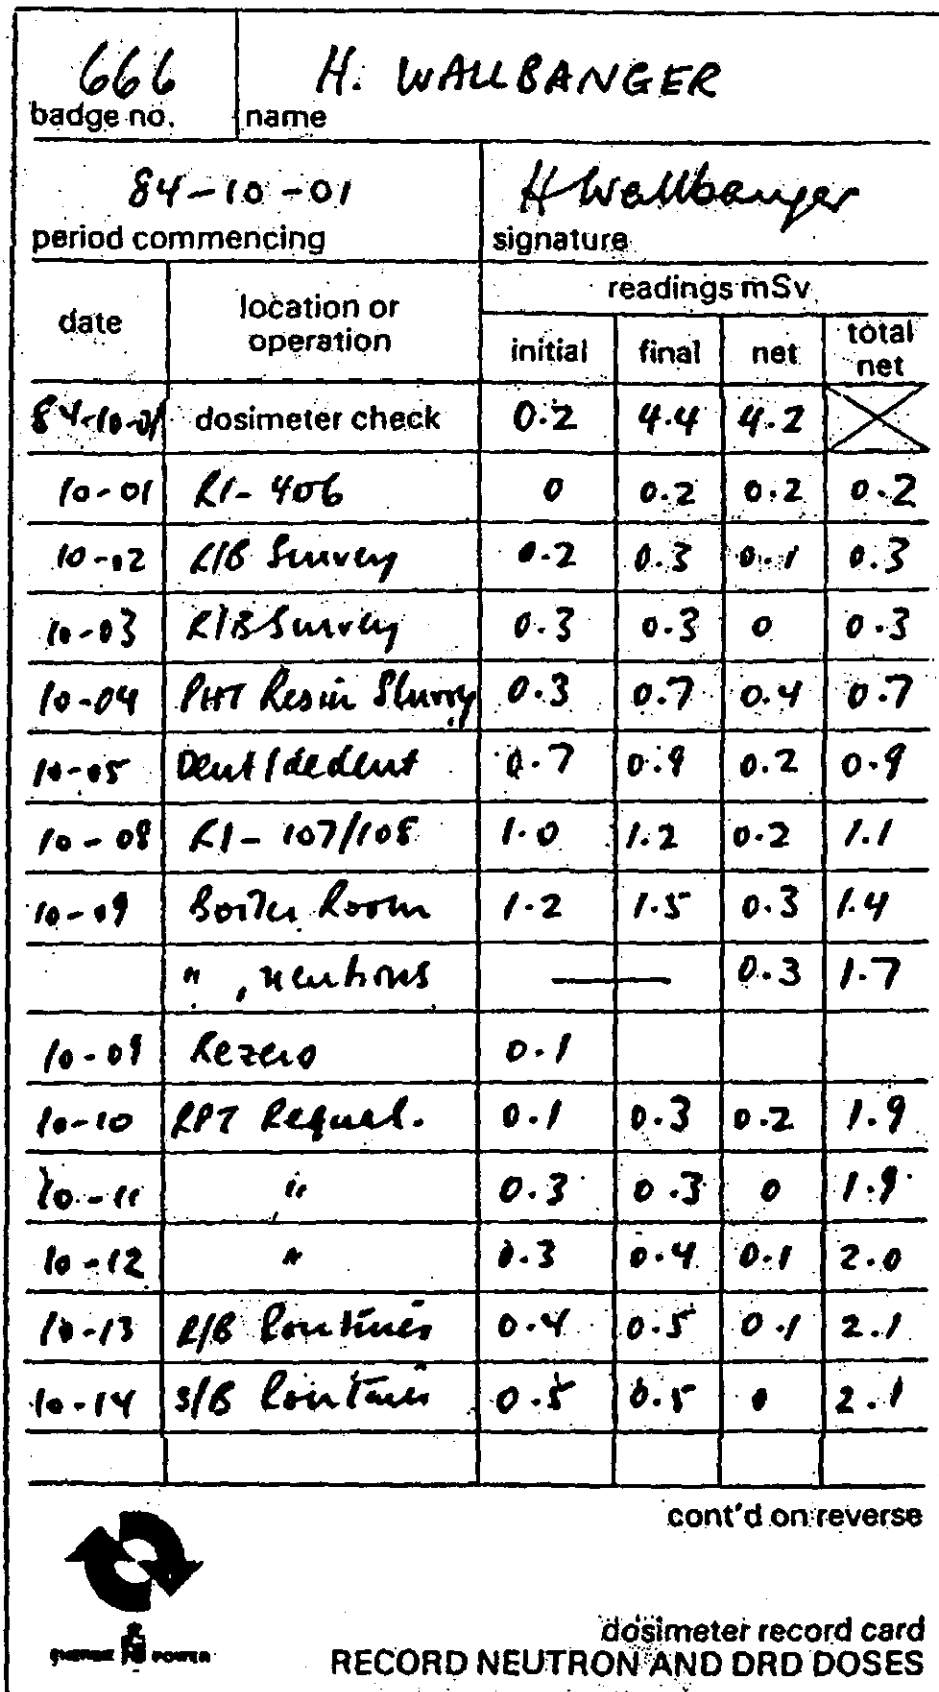 666 H. WALLBANGER
badge no. name
84-10-01 H Wallbanger
period commencing signature
readings mSv
date location or operation initial final net total net
84-10-01 dosimeter check 0.2 4.4 4.2
10-01 R1-406 0 0.2 0.2 0.2
10-02 R/B Survey 0.2 0.3 0.1 0.3
10-03 R/B Survey 0.3 0.3 0 0.3
10-04 PHT Resin Slurry 0.3 0.7 0.4 0.7
10-05 Dent/dedent 0.7 0.9 0.2 0.9
10-08 R1-107/108 1.0 1.2 0.2 1.1
10-09 Boiler Room 1.2 1.5 0.3 1.4
" , neutrons — 0.3 1.7
10-09 Rezero 0.1
10-10 RPT Requal. 0.1 0.3 0.2 1.9
10-11 " 0.3 0.3 0 1.9
10-12 " 0.3 0.4 0.1 2.0
10-13 R/B Routines 0.4 0.5 0.1 2.1
10-14 S/B Routines 0.5 0.5 0 2.1
cont'd on reverse
POWER
dosimeter record card
RECORD NEUTRON AND DRD DOSES